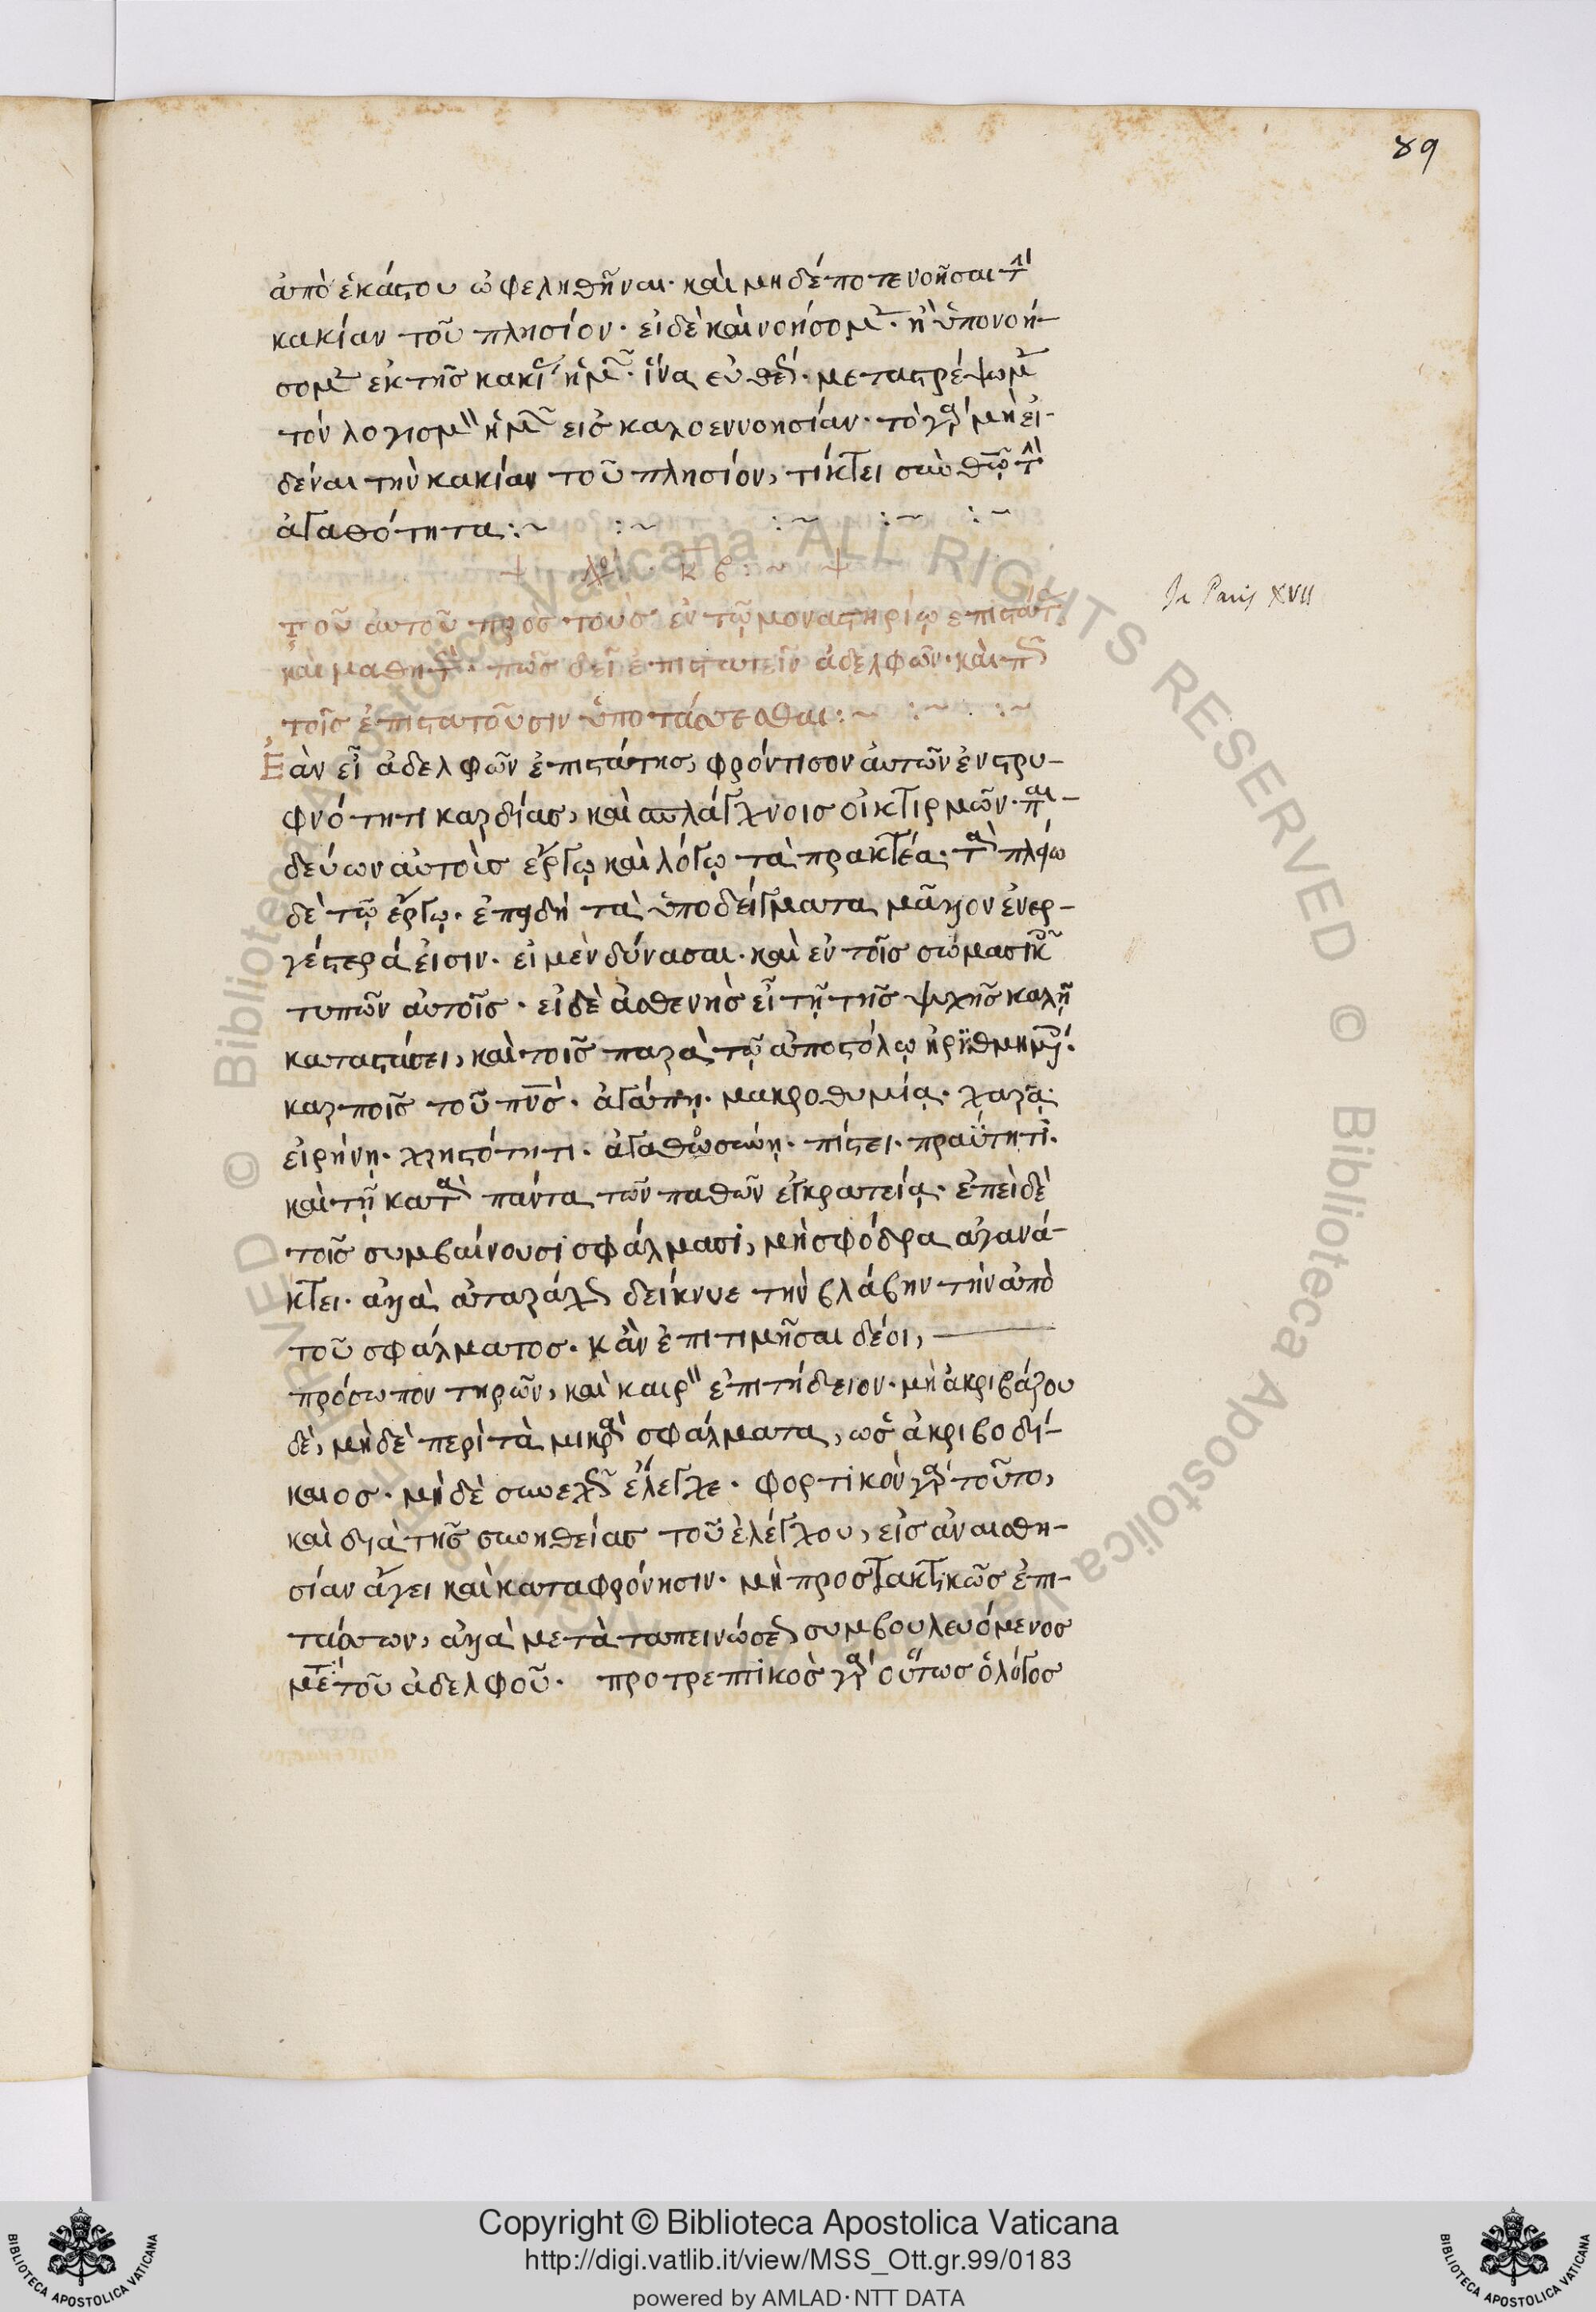 89
ἀπὸ ἑκάστου ὠφεληθῆναι· καὶ μηδέποτε νοῆσαι τὴν
κακίαν τοῦ πλησίον· εἰ δὲ καὶ νοήσομεν· ἢ ὑπονοή-
σομεν ἐκ τῆς κακίας ἡμῶν· ἵνα εὐθέως· μεταστρέψωμεν
τὸν λογισμὸν ἡμῶν εἰς καλοεννοησίαν· τὸ γὰρ μὴ εἰ-
δέναι τὴν κακίαν τοῦ πλησίον, τίκτει σὺν θεῷ τὴν
ἀγαθότητα :~ :~ :~ :~ :~
κβ :~
τοῦ αὐτοῦ πρὸς τοὺς ἐν τῷ μοναστηρίῳ ἐπιστάτας
καὶ μαθητάς· πῶς δεῖ ἐπιστατεῖν ἀδελφῶν· καὶ πῶς
τοῖς ἐπιστατοῦσιν ὑποτάσσεσθαι :~ :~ :~
In Paris XVII
Ἐὰν εἶ ἀδελφῶν ἐπιστάτης, φρόντισον αὐτῶν ἐν στρυ-
φνότητι καρδίας, καὶ σπλάγχνοις οἰκτιρμῶν· παι-
δεύων αὐτοὺς ἔργῳ καὶ λόγῳ τὰ πρακτέα· τὰ πλείω
δὲ τῷ ἔργῳ· ἐπειδὴ τὰ ὑποδείγματα μᾶλλον ἐνερ-
γέστερά εἰσιν· εἰ μὲν δύνασαι· καὶ ἐν τοῖς σώμασιν
τυπῶν αὐτοῖς· εἰ δὲ ἀσθενὴς εἶ τῇ τῆς ψυχῆς καλῇ
καταστάσει, καὶ τοῖς παρὰ τῷ ἀποστόλῳ ἠριθμημένοις
καρποῖς τοῦ πνς· ἀγάπῃ· μακροθυμίᾳ· χαρᾷ·
εἰρήνῃ· χρηστότητι· ἀγαθωσύνῃ· πίστει· πραΰτητι·
καὶ τῇ κατὰ πάντα τῶν παθῶν ἐγκρατείᾳ· ἐπεὶ δὲ
τοῖς συμβαίνουσι σφάλμασι, μὴ σφόδρα ἀγανά-
κτει· ἀλλὰ ἀταράχως δείκνυε τὴν βλάβην τὴν ἀπὸ
τοῦ σφάλματος· κἂν ἐπιτιμῆσαι δέοι,
πρόσωπον τηρῶν, καὶ καιρὸν ἐπιτήδειον· μὴ ἀκριβάζου
δὲ, μὴ δὲ περὶ τὰ μικρὰ σφάλματα, ὡς ἀκριβοδί-
καιος· μὴ δὲ συνεχῶς ἔλεγχε· φορτικὸν γὰρ τοῦτο,
καὶ διὰ τῆς συνηθείας τοῦ ἐλέγχου, εἰς ἀναισθη-
σίαν ἄγει καὶ καταφρόνησιν· μὴ προστακτικῶς ἐπι-
τάττων, ἀλλὰ μετὰ ταπεινώσεως συμβουλευόμενος
μετὰ τοῦ ἀδελφοῦ· προτρεπτικὸς γὰρ οὕτως ὁ λόγος
Copyright © Biblioteca Apostolica Vaticana
http://digi.vatlib.it/view/MSS_Ott.gr.99/0183
powered by AMLAD·NTT DATA